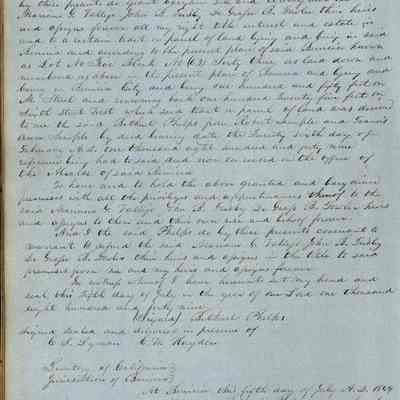 by these presents do grant bargain
Mariano G. Vallejo John A. Fusby & George A. Foster their heirs
and assigns forever all my right title interest and estate in
and to a certain tract or parcel of land lying and being in said
Benicia and according to the present plan of said Benicia known
as Lot No Four Block No (43) Forty three as laid down and
numbered as above in the present plan of Benicia and lying and
being in Benicia City and being one hundred and fifty feet on
M Street and running back one hundred twenty five feet on
Street First which said tract or parcel of land was deeded
to me the said Bethuel Phelps from Robert Semple and Francis
Semple by deed bearing date the Twenty sixth day of
February A.D. one thousand eight hundred and forty nine
reference being had to said deed now on record in the office
of the Alcalde of said Benicia
To have and to hold the above granted and bargained
premises with all the privileges and appurtenances thereof to the
said Mariano G. Vallejo John A. Fusby & George A. Foster heirs
and assigns to them and their own use and behoof forever.
And I the said Phelps do by these presents covenant &
warrant & defend the said Mariano G. Vallejo John A. Fusby
& George A. Foster their heirs and assigns in the title to said
premises given me and my heirs and assigns forever.
In witness whereof I have hereunto set my hand and
seal this fifth day of July in the year of our Lord one thousand
eight hundred and forty nine
(Signed) Bethuel Phelps
Signed sealed and delivered in presence of
C. S. Lyman C. W. Hayden
Territory of California }
Jurisdiction of Benicia }
At Benicia this fifth day of July A.D. 1849